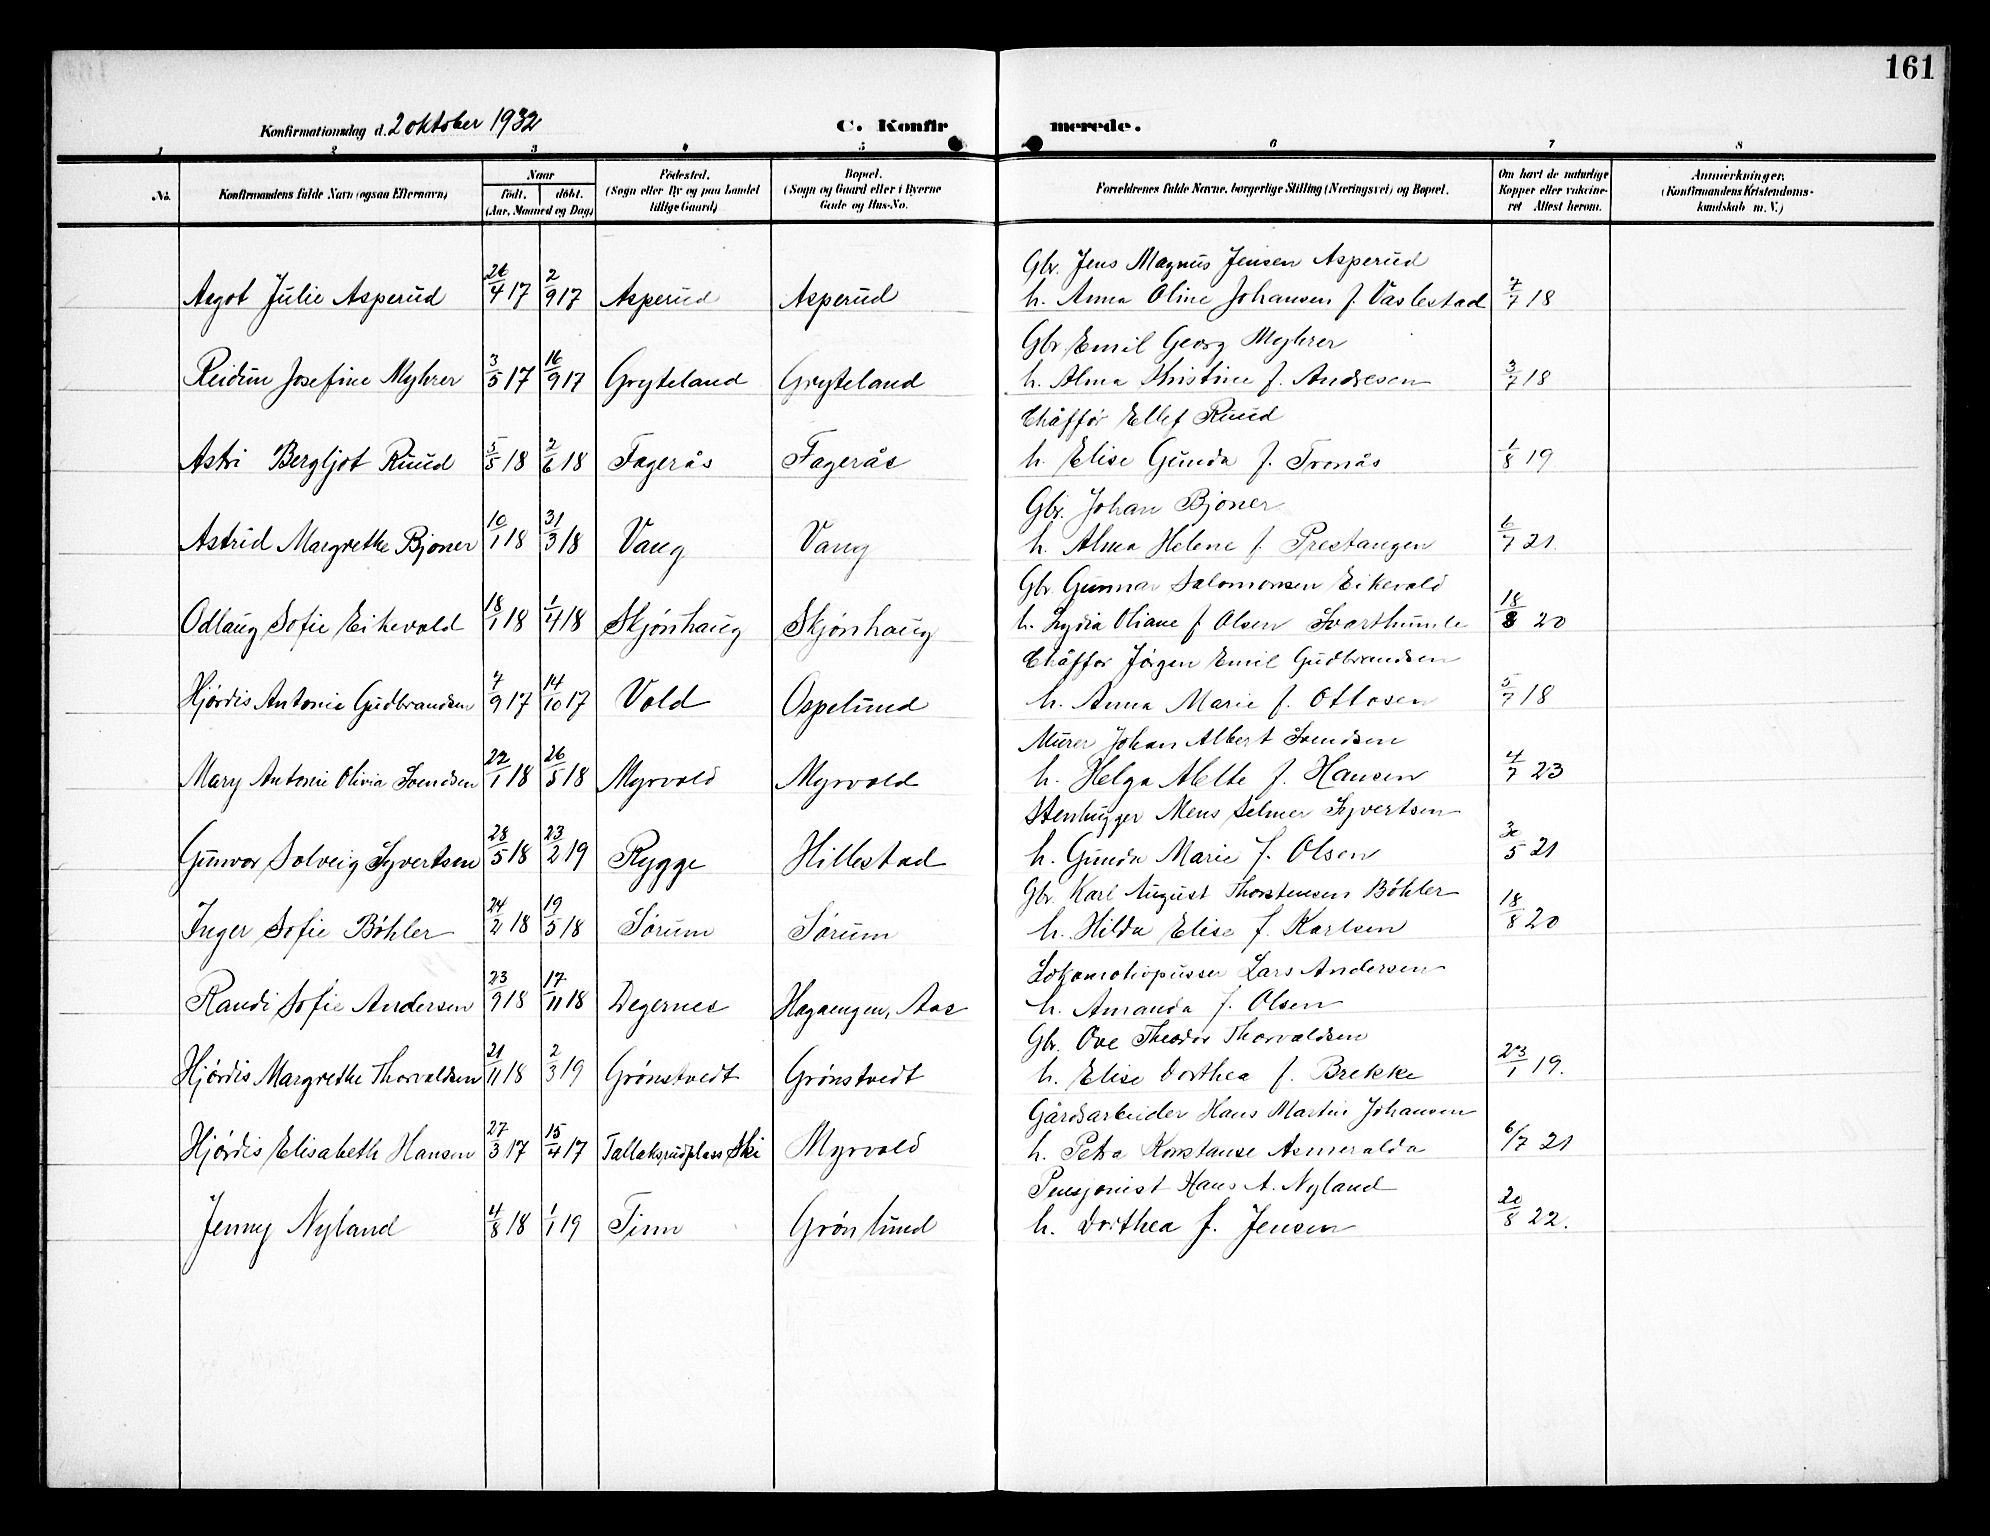 161
Konfirmationsdag d. 2 oktober 1932
C. Konfirmerede.
1 2 3 4 5 6 7 8
No.
Konfirmandens fulde Navn (ogsaa Efternavn)
Naar
födt. döbt.
(Aar, Maaned og Dag)
Födested.
(Sogn eller By og paa Landet
tillige Gaard)
Bopæl.
(Sogn og Gaard eller i Byerne
Gade og Hus-No.
Forældrenes fulde Navne, borgerlige Stilling (Næringsvei) og Bopæl.
Om havt de naturlige
Kopper eller vakcine-
ret Attest herom.
Anmærkninger.
(Konfirmandens Kristendoms-
kundskab m. V.)
Gbr. Jens Magnus Jensen Asperud
Aagot Julie Asperud 26/4 17 2/9 17 Asperud Asperud h. Anna Oline Johansen f. Vaslestad 7/7 18
Gbr Emil Georg Myhrer
Reidun Josefine Myhrer 3/5 17 16/9 17 Gryteland Gryteland h. Alma Kristine f. Andresen 3/7 18
Chåffør Ellef Ruud
Astri Bergljot Ruud 5/5 18 2/6 18 Fagerås Fagerås h. Elise Gunda f. Tronås 1/8 19
Gbr. Johan Bjoner
Astrid Margrethe Bjoner 10/1 18 31/3 18 Vang Vang h. Alma Helene f. Prestangen 6/7 21.
Gbr Gunnar Salomonsen Eikevold
Odlaug Sofie Eikevold 18/1 18 1/4 18 Skjønhaug Skjønhaug h. Lydia Oliane f Olsen Svarthumle 18/8 20
Chåffør Jørgen Emil Gudbrandsen
Hjørdis Antonie Gudbrandsen 7/9 17 14/10 17 Vold Ospelund h. Anna Marie f. Ottosen 5/7 18
Murer Johan Albert Svendsen
Mary Antonie Olivia Svendsen 22/1 18 26/5 18 Myrvold Myrvold h. Helga Mette f. Hansen 4/7 23
Stenhugger Mens Selmer Syvertsen
Gunvor Solveig Syvertsen 28/5 18 23/2 19 Rygge Hillestad h. Gunda Marie f. Olsen 30/5 21
Gbr Karl August Thorstensen Bøhler
Inger Sofie Bøhler 24/2 18 19/5 18 Sørum Sørum h. Hilda Elise f. Karlsen 18/8 20
Lokomotivpusser Lars Andersen
Randi Sofie Andersen 23/9 18 17/11 18 Degernes Hagaengen, Aas h. Amanda f. Olsen
Gbr. Ove Theodor Thorvaldsen
Hjørdis Margrethe Thorvaldsen 21/11 18 2/3 19 Grønstvedt Grønstvedt h. Elise Dorthea f. Brekke 23/1 19.
Gårdsarbeider Hans Martin Johansen
Hjørdis Elisabeth Hansen 27/3 17 15/4 17 Tallaksrudplass Ski Myrvold h. Petra Konstanse Asmeralda 6/7 21
Pensjonist Hans A. Nyland
Jenny Nyland 4/8 18 1/1 19 Tinn Grønlund h. Dorthea f. Jensen 20/8 22.